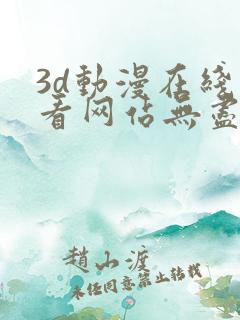 3d動漫在綫
看网站無盡
趙小渡
未经同意禁止转载